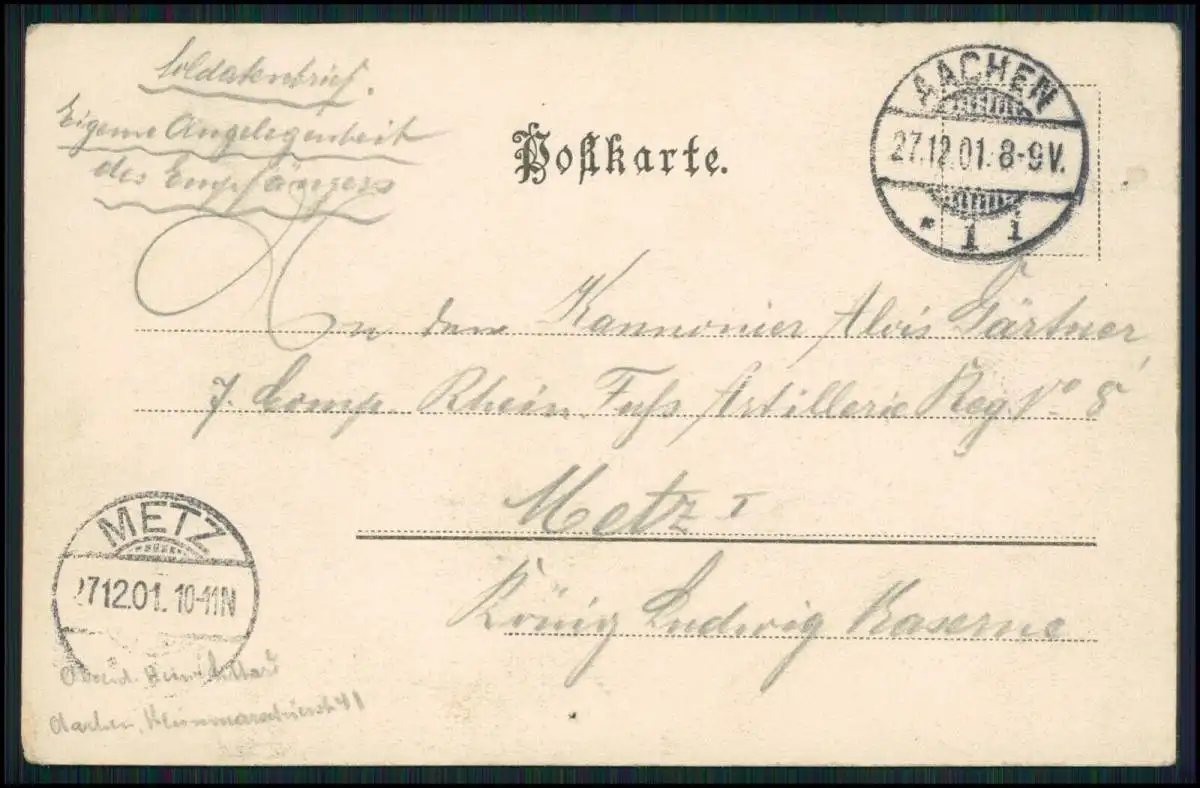 Soldatenbrief.
Eigene Angelegenheit
des Empfängers
Postkarte.
AACHEN
27.12.01. 8-9V.
* 1 i
An den Kannonier Alois Gärtner
7. Comp. Rhein. Fuß Artillerie Reg. No 8
Metz I
König Ludwig Kaserne
METZ
27.12.01. 10-11N
Absend.
Aachen, 41